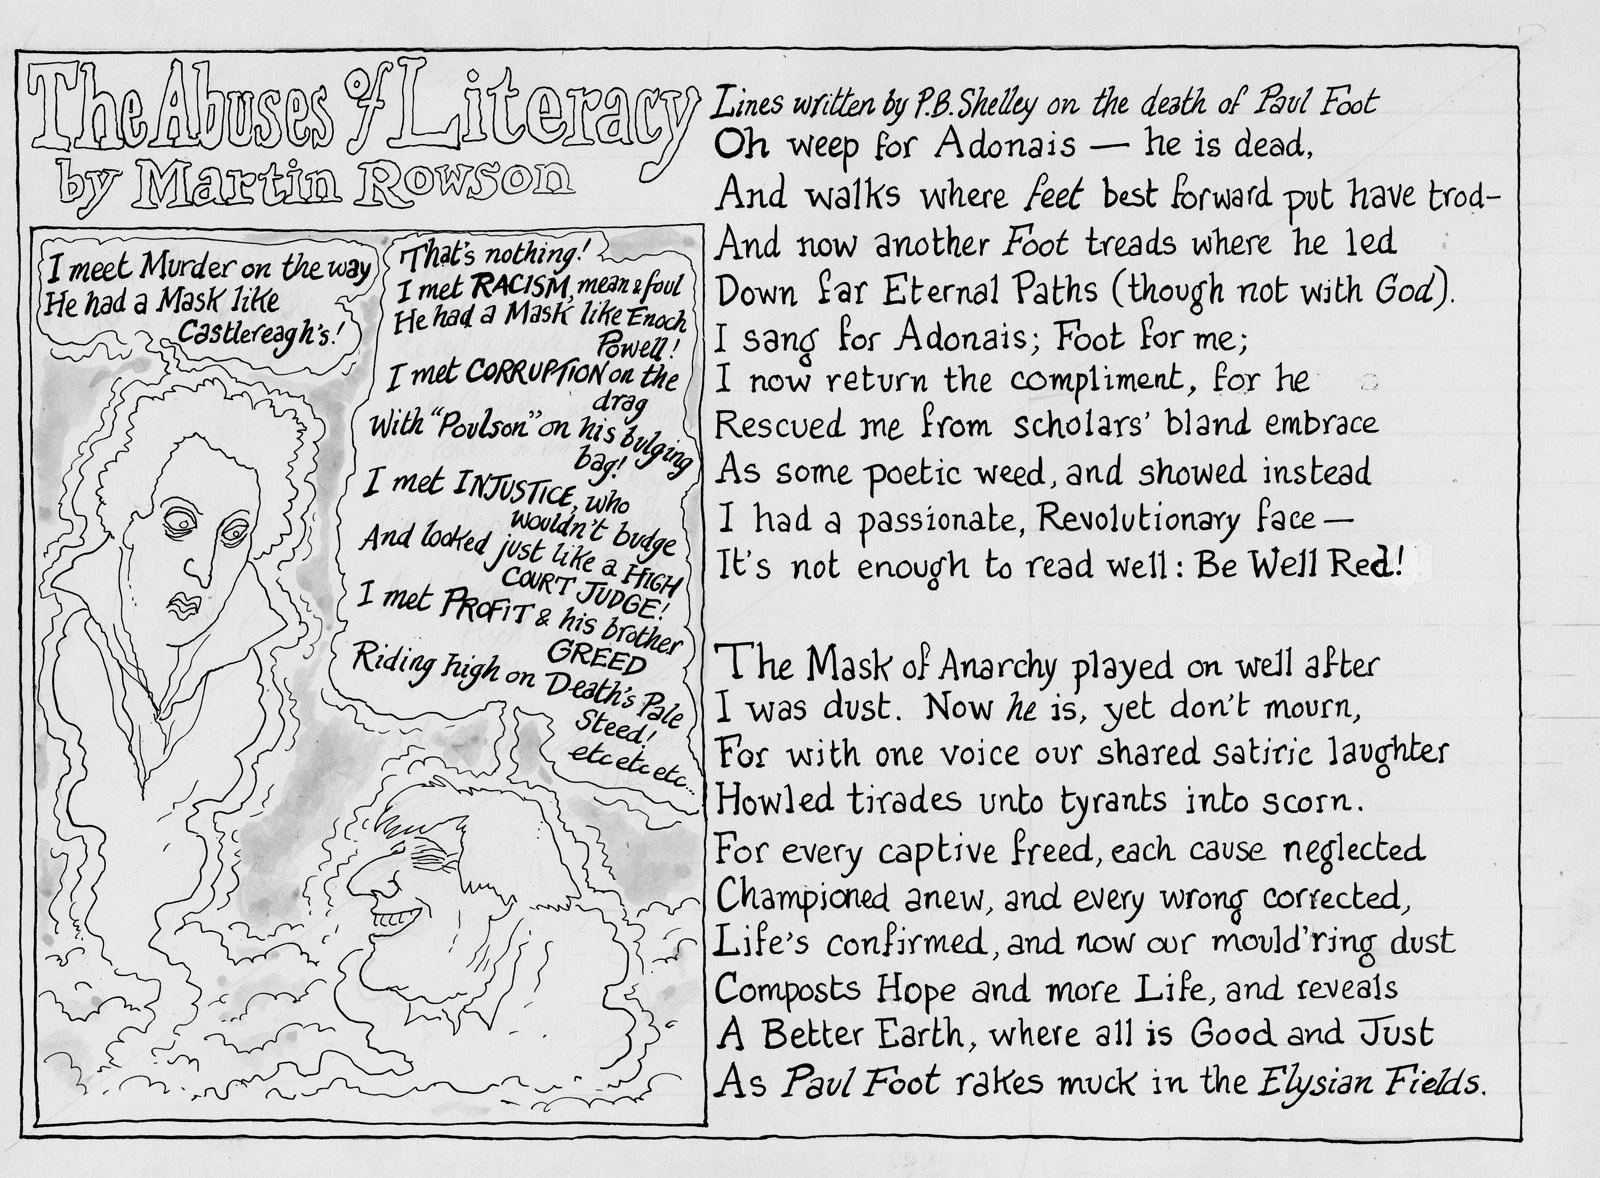 The Abuses of Literacy
by Martin Rowson
I meet Murder on the way
He had a Mask like
Castlereagh's!
That's nothing!
I met RACISM, mean & foul
He had a Mask like Enoch
Powell!
I met CORRUPTION on the
drag
With "Poulson" on his bulging
bag!
I met INJUSTICE, who
wouldn't budge
And looked just like a HIGH
COURT JUDGE!
I met PROFIT & his brother
GREED
Riding high on Death's Pale
Steed!
etc etc etc...
Lines written by P.B. Shelley on the death of Paul Foot
Oh weep for Adonais — he is dead,
And walks where feet best forward put have trod-
And now another Foot treads where he led
Down far Eternal Paths (though not with God).
I sang for Adonais; Foot for me;
I now return the compliment, for he
Rescued me from scholars' bland embrace
As some poetic weed, and showed instead
I had a passionate, Revolutionary face —
It's not enough to read well: Be Well Red!
The Mask of Anarchy played on well after
I was dust. Now he is, yet don't mourn,
For with one voice our shared satiric laughter
Howled tirades unto tyrants into scorn.
For every captive freed, each cause neglected
Championed anew, and every wrong corrected,
Life's confirmed, and now our mould'ring dust
Composts Hope and more Life, and reveals
A Better Earth, where all is Good and Just
As Paul Foot rakes muck in the Elysian Fields.